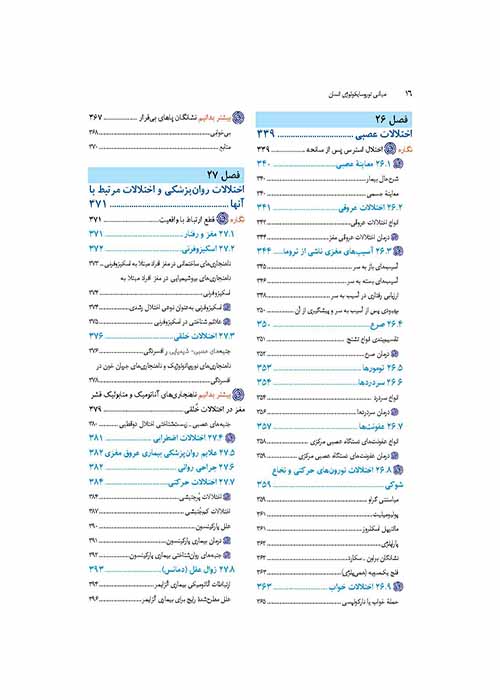 ۱۶ مبانی نوروسایکولوژی انسان
فصل ۲۶
اختلالات عصبی ... ۳۳۹
نگاره اختلال استرس پس از سانحه ... ۳۳۹
۲۶.۱ معاینهٔ عصبی ... ۳۴۰
شرح‌حال بیمار ... ۳۴۰
معاینهٔ جسمی ... ۳۴۰
۲۶.۲ اختلالات عروقی ... ۳۴۱
انواع اختلالات عروقی ... ۳۴۲
درمان اختلالات عروقی مغز ... ۳۴۴
۲۶.۳ آسیب‌های مغزی ناشی از تروما ... ۳۴۴
آسیب‌های باز به سر ... ۳۴۵
آسیب‌های بسته به سر ... ۳۴۶
ارزیابی رفتاری در آسیب به سر ... ۳۴۸
بهبودی پس از آسیب به سر و پیشگیری از آن ... ۳۵۰
۲۶.۴ صرع ... ۳۵۰
تقسیم‌بندی انواع تشنج ... ۳۵۱
درمان صرع ... ۳۵۲
۲۶.۵ تومورها ... ۳۵۳
۲۶.۶ سردردها ... ۳۵۴
انواع سردرد ... ۳۵۴
درمان سردردها ... ۳۵۶
۲۶.۷ عفونت‌ها ... ۳۵۷
انواع عفونت‌های دستگاه عصبی مرکزی ... ۳۵۸
درمان عفونت‌های دستگاه عصبی مرکزی ... ۳۵۹
۲۶.۸ اختلالات نورون‌های حرکتی و نخاع
شوکی ... ۳۵۹
میاستنی گراو ... ۳۵۹
پولیومیلیت ... ۳۶۱
مالتیپل اسکلروز ... ۳۶۱
پاراپلژی ... ۳۶۲
نشانگان براون ـ سکارد ... ۳۶۲
فلج یکسویه (همی‌پلژی) ... ۳۶۳
۲۶.۹ اختلالات خواب ... ۳۶۳
حملهٔ خواب یا نارکولپسی ... ۳۶۵
بیشتر بدانیم نشانگان پاهای بی‌قرار ... ۳۶۷
بی‌خوابی ... ۳۶۸
منابع ... ۳۷۰
فصل ۲۷
اختلالات روان‌پزشکی و اختلالات مرتبط با
آنها ... ۳۷۱
نگاره قطع ارتباط با واقعیت ... ۳۷۱
۲۷.۱ مغز و رفتار ... ۳۷۱
۲۷.۲ اسکیزوفرنی ... ۳۷۲
ناهنجاری‌های ساختمانی در مغز افراد مبتلا به اسکیزوفرنی ... ۳۷۳
ناهنجاری‌های بیوشیمیایی در مغز افراد مبتلا به
اسکیزوفرنی ... ۳۷۴
اسکیزوفرنی به‌عنوان نوعی اختلال رشدی ... ۳۷۴
علائم شناختی در اسکیزوفرنی ... ۳۷۵
۲۷.۳ اختلالات خلقی ... ۳۷۶
جنبه‌های عصبی- شیمیایی و افسردگی ... ۳۷۶
ناهنجاری‌های نوروپاتولوژیک و ناهنجاری‌های جریان خون در
افسردگی ... ۳۷۸
بیشتر بدانیم ناهنجاری‌های آناتومیک و متابولیک قشر
مغز در اختلالات خُلقی ... ۳۷۹
جنبه‌های عصبی ـ زیست‌شناختی اختلال دوقطبی ... ۳۸۰
۲۷.۴ اختلالات اضطرابی ... ۳۸۱
۲۷.۵ علایم روان‌پزشکی بیماری عروق مغزی ۳۸۲
۲۷.۶ جراحی روانی ... ۳۸۲
۲۷.۷ اختلالات حرکتی ... ۳۸۴
اختلالات پُرجنبشی ... ۳۸۴
اختلالات کم‌جُنبشی ... ۳۸۷
علل پارکینسون ... ۳۹۰
درمان بیماری پارکینسون ... ۳۹۱
جنبه‌های روان‌شناختی بیماری پارکینسون ... ۳۹۲
۲۷.۸ زوال عقل (دمانس) ... ۳۹۳
ارتباطات آناتومیکی بیماری آلزایمر ... ۳۹۴
علل مطرح‌شدهٔ رایج برای بیماری آلزایمر ... ۳۹۶